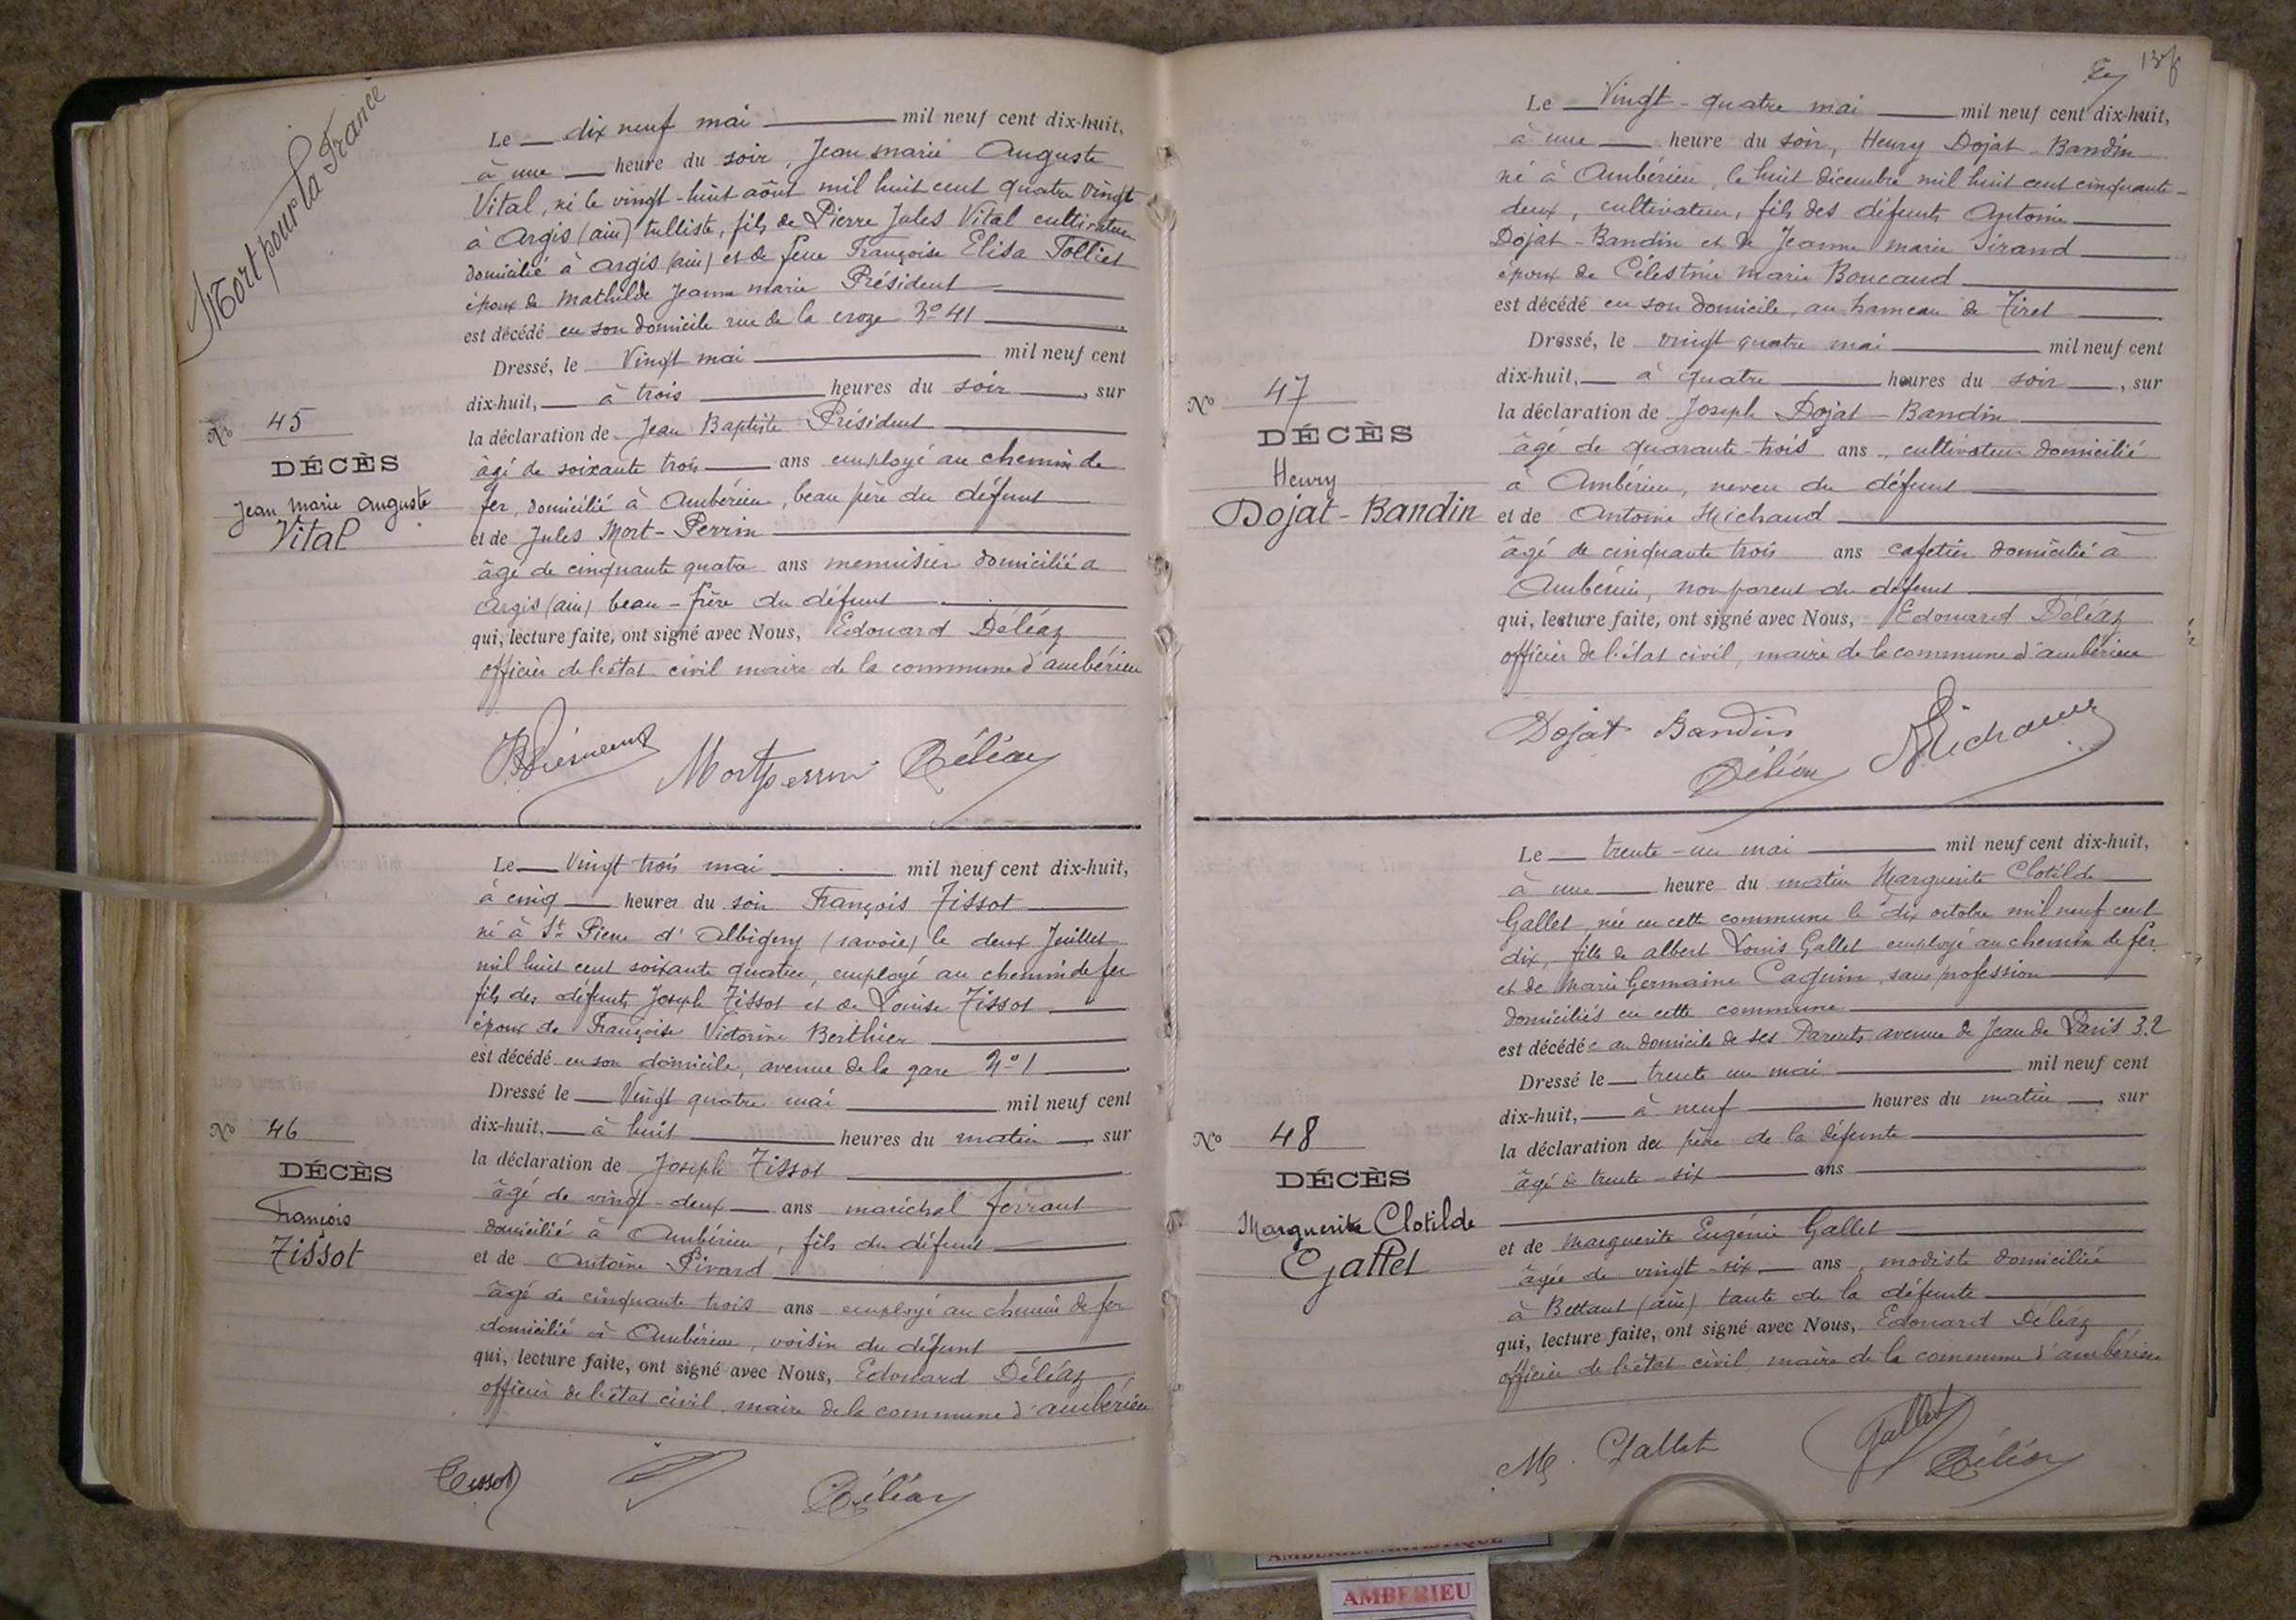 Mort pour la France
Le dix neuf mai mil neuf cent dix-huit,
à une heure du soir, Jean marie Auguste
Vital, né le vingt-huit août mil huit cent quatre vingt
à Argis (ain) tulliste, fils de Pierre Jules Vital cultivateur
domicilié à argis (ain) et de feue Françoise Elisa Tolliet
époux de Mathilde Jeanne marie Président
est décédé en son domicile rue de la croze No 41
Dressé, le Vingt mai mil neuf cent
dix-huit, à trois heures du soir, sur
la déclaration de Jean Baptiste Président
âgé de soixante trois ans employé au chemin de
fer, domicilié à Ambérieu, beau père du défunt
et de Jules Mort-Perrin
âgé de cinquante quatre ans menuisier domicilié a
argis (ain) beau-frère du défunt
qui, lecture faite, ont signé avec Nous, Edouard Déléaz
officier de l'état civil maire de la commune d'ambérieu
No 45
DÉCÈS
Jean Marie Auguste
Vital
Mortperrin Déléaz
Le Vingt trois mai mil neuf cent dix-huit,
à cinq heures du soir François Tissot
né à St Pierre d'Albigny (savoie) le deux Juillet
mil huit cent soixante quatre, employé au chemin de fer
fils des défunts Joseph Tissot et de Louise Tissot
époux de Françoise Victorine Berthier
est décédé en son domicile, avenue de la gare No 1
Dressé le Vingt quatre mai mil neuf cent
dix-huit, à huit heures du matin, sur
la déclaration de Joseph Tissot
âgé de vingt-deux ans maréchal ferrant
domicilié à Ambérieu, fils du défunt
et de Antoine Pivard
âgé de cinquante trois ans employé au chemin de fer
domicilié à Ambérieu, voisin du défunt
qui, lecture faite, ont signé avec Nous, Edouard Déléaz
officier de l'état civil, maire de la commune d'ambérieu
No 46
DÉCÈS
François
Tissot
Tissot Déléaz
Le Vingt-quatre mai mil neuf cent dix-huit,
à une heure du soir, Henry Dojat-Bandin
né à Ambérieu, le huit décembre mil huit cent cinquante-
deux, cultivateur, fils des défunts Antoine
Dojat-Bandin et de Jeanne marie Sirand
époux de Célestine marie Boucaud
est décédé en son domicile, au hameau de Tiret
Dressé, le vingt quatre mai mil neuf cent
dix-huit, à quatre heures du soir, sur
la déclaration de Joseph Dojat-Bandin
âgé de quarante-trois ans, cultivateur domicilié
à Ambérieu, neveu du défunt
et de Antoine Michaud
âgé de cinquante trois ans cafetier domicilié à
Ambérieu, non parent du défunt
qui, lecture faite, ont signé avec Nous, Edouard Déléaz
officier de l'état civil, maire de la commune d'ambérieu
No 47
DÉCÈS
Henry
Dojat-Bandin
Dojat Bandin Michaud
Déléaz
Le trente-un mai mil neuf cent dix-huit,
à une heure du matin Marguerite Clotilde
Gallet, née en cette commune le dix octobre mil neuf cent
dix, fille de albert Louis Gallet employé au chemin de fer
et de Marie Germaine Caguin, sans profession
domiciliés en cette commune
est décédée au domicile de ses Parents avenue de Jean de Paris 32
Dressé le trente un mai mil neuf cent
dix-huit, à neuf heures du matin, sur
la déclaration du père de la défunte
âgé de trente-six ans
et de Marguerite Eugénie Gallet
âgée de vingt-six ans, modiste domiciliée
à Bettant (ain) tante de la défunte
qui, lecture faite, ont signé avec Nous, Edouard Déléaz
officier de l'état civil maire de la commune d'ambérieu
No 48
DÉCÈS
Marguerite Clotilde
Gallet
M. Gallet Gallet
Déléaz
AMBERIEU